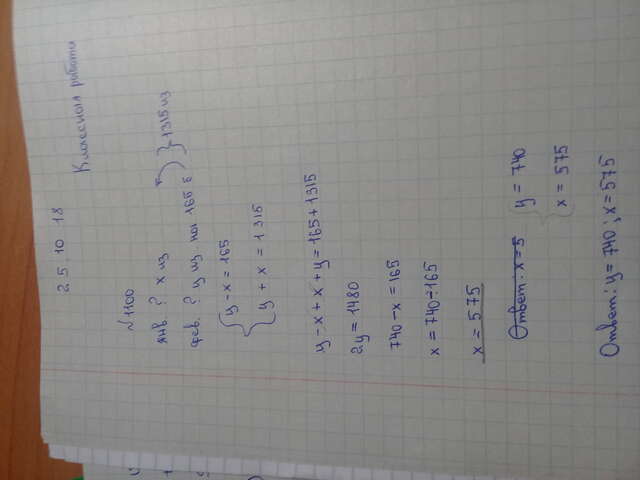 25.10.18
Классная работа
№1100
янв. ? x из
фев. ? y из. на 165 б } 1315 из
y - x = 165
y + x = 1315
y - x + x + y = 165 + 1315
2y = 1480
740 - x = 165
x = 740 - 165
x = 575
Ответ: x = 5
y = 740
x = 575
Ответ: y = 740; x = 575